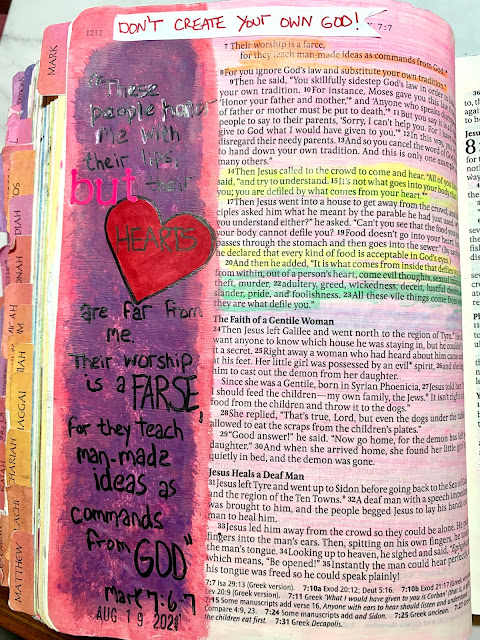 1212
DON'T CREATE YOUR OWN GOD!
7:7
MARK
"These
people honor
me with
their lips,
but their
HEARTS
are far from
me.
Their worship
is a FARSE,
for they teach
man-made
ideas as
commands
from GOD"
Mark 7:6-7
AUG 19 2021
7 Their worship is a farce,
for they teach man-made ideas as commands from God.'
8 For you ignore God's law and substitute your own tradition."
9 Then he said, "You skillfully sidestep God's law in order
your own tradition. 10 For instance, Moses gave you this law
'Honor your father and mother,' and 'Anyone who speaks
of father or mother must be put to death.' 11 But you say it is
people to say to their parents, 'Sorry, I can't help you. For I have
give to God what I would have given to you.' 12 In this way, you
disregard their needy parents. 13 And so you cancel the word of God
to hand down your own tradition. And this is only one example
many others."
14 Then Jesus called to the crowd to come and hear. "All of you
said, "and try to understand. 15 It's not what goes into your body
you; you are defiled by what comes from your heart."
17 Then Jesus went into a house to get away from the crowd, and
ciples asked him what he meant by the parable he had just used.
you understand either?" he asked. "Can't you see that the food you
your body cannot defile you? 19 Food doesn't go into your heart,
passes through the stomach and then goes into the sewer." (By
he declared that every kind of food is acceptable in God's eyes.)
20 And then he added, "It is what comes from inside that defiles
from within, out of a person's heart, come evil thoughts, sexual
theft, murder, 22 adultery, greed, wickedness, deceit, lustful desires,
slander, pride, and foolishness. 23 All these vile things come from
they are what defile you."
The Faith of a Gentile Woman
24 Then Jesus left Galilee and went north to the region of Tyre.
want anyone to know which house he was staying in, but he couldn't
it a secret. 25 Right away a woman who had heard about him came and
at his feet. Her little girl was possessed by an evil spirit, 26 and she
him to cast out the demon from her daughter.
Since she was a Gentile, born in Syrian Phoenicia, 27 Jesus told her,
I should feed the children—my own family, the Jews. It isn't right
food from the children and throw it to the dogs."
28 She replied, "That's true, Lord, but even the dogs under the table
allowed to eat the scraps from the children's plates."
29 "Good answer!" he said. "Now go home, for the demon has left
daughter." 30 And when she arrived home, she found her little girl
quietly in bed, and the demon was gone.
Jesus Heals a Deaf Man
31 Jesus left Tyre and went up to Sidon before going back to the Sea of
and the region of the Ten Towns. 32 A deaf man with a speech
was brought to him, and the people begged Jesus to lay his hands
man to heal him.
33 Jesus led him away from the crowd so they could be alone. He put
fingers into the man's ears. Then, spitting on his own fingers, he
the man's tongue. 34 Looking up to heaven, he sighed and said,
which means, "Be opened!" 35 Instantly the man could hear perfectly,
his tongue was freed so he could speak plainly!
7:7 Isa 29:13 (Greek version). 7:10a Exod 20:12; Deut 5:16. 7:10b Exod 21:17 (Greek
Lev 20:9 (Greek version). 7:11 Greek 'What I would have given to you is Corban'
7:15 Some manuscripts add verse 16, Anyone with ears to hear should listen and understand.
Compare 4:9, 23. 7:24 Some manuscripts add and Sidon. 7:25 Greek unclean.
the children eat first. 7:31 Greek Decapolis.
JONAH
MICAH
HAGGAI
MATTHEW